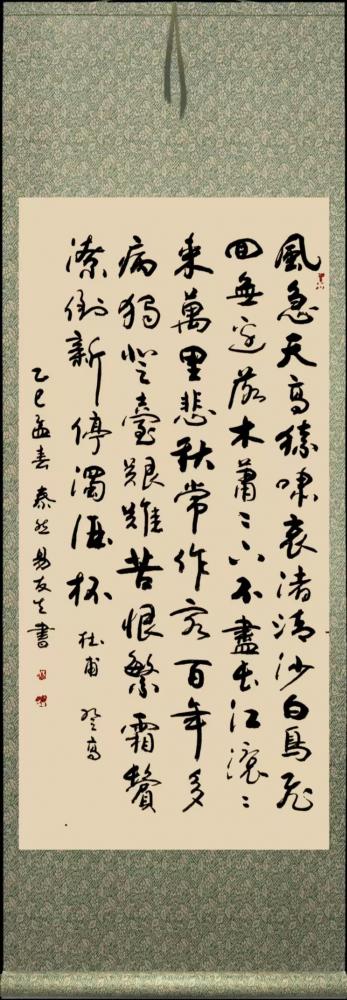 風急天高猿嘯哀渚清沙白鳥飛
回無邊落木蕭〻下不盡長江滾〻
來萬里悲秋常作客百年多
病獨登臺艱難苦恨繁霜鬢
潦倒新停濁酒杯 杜甫 登高
乙巳孟春 泰然易友 書